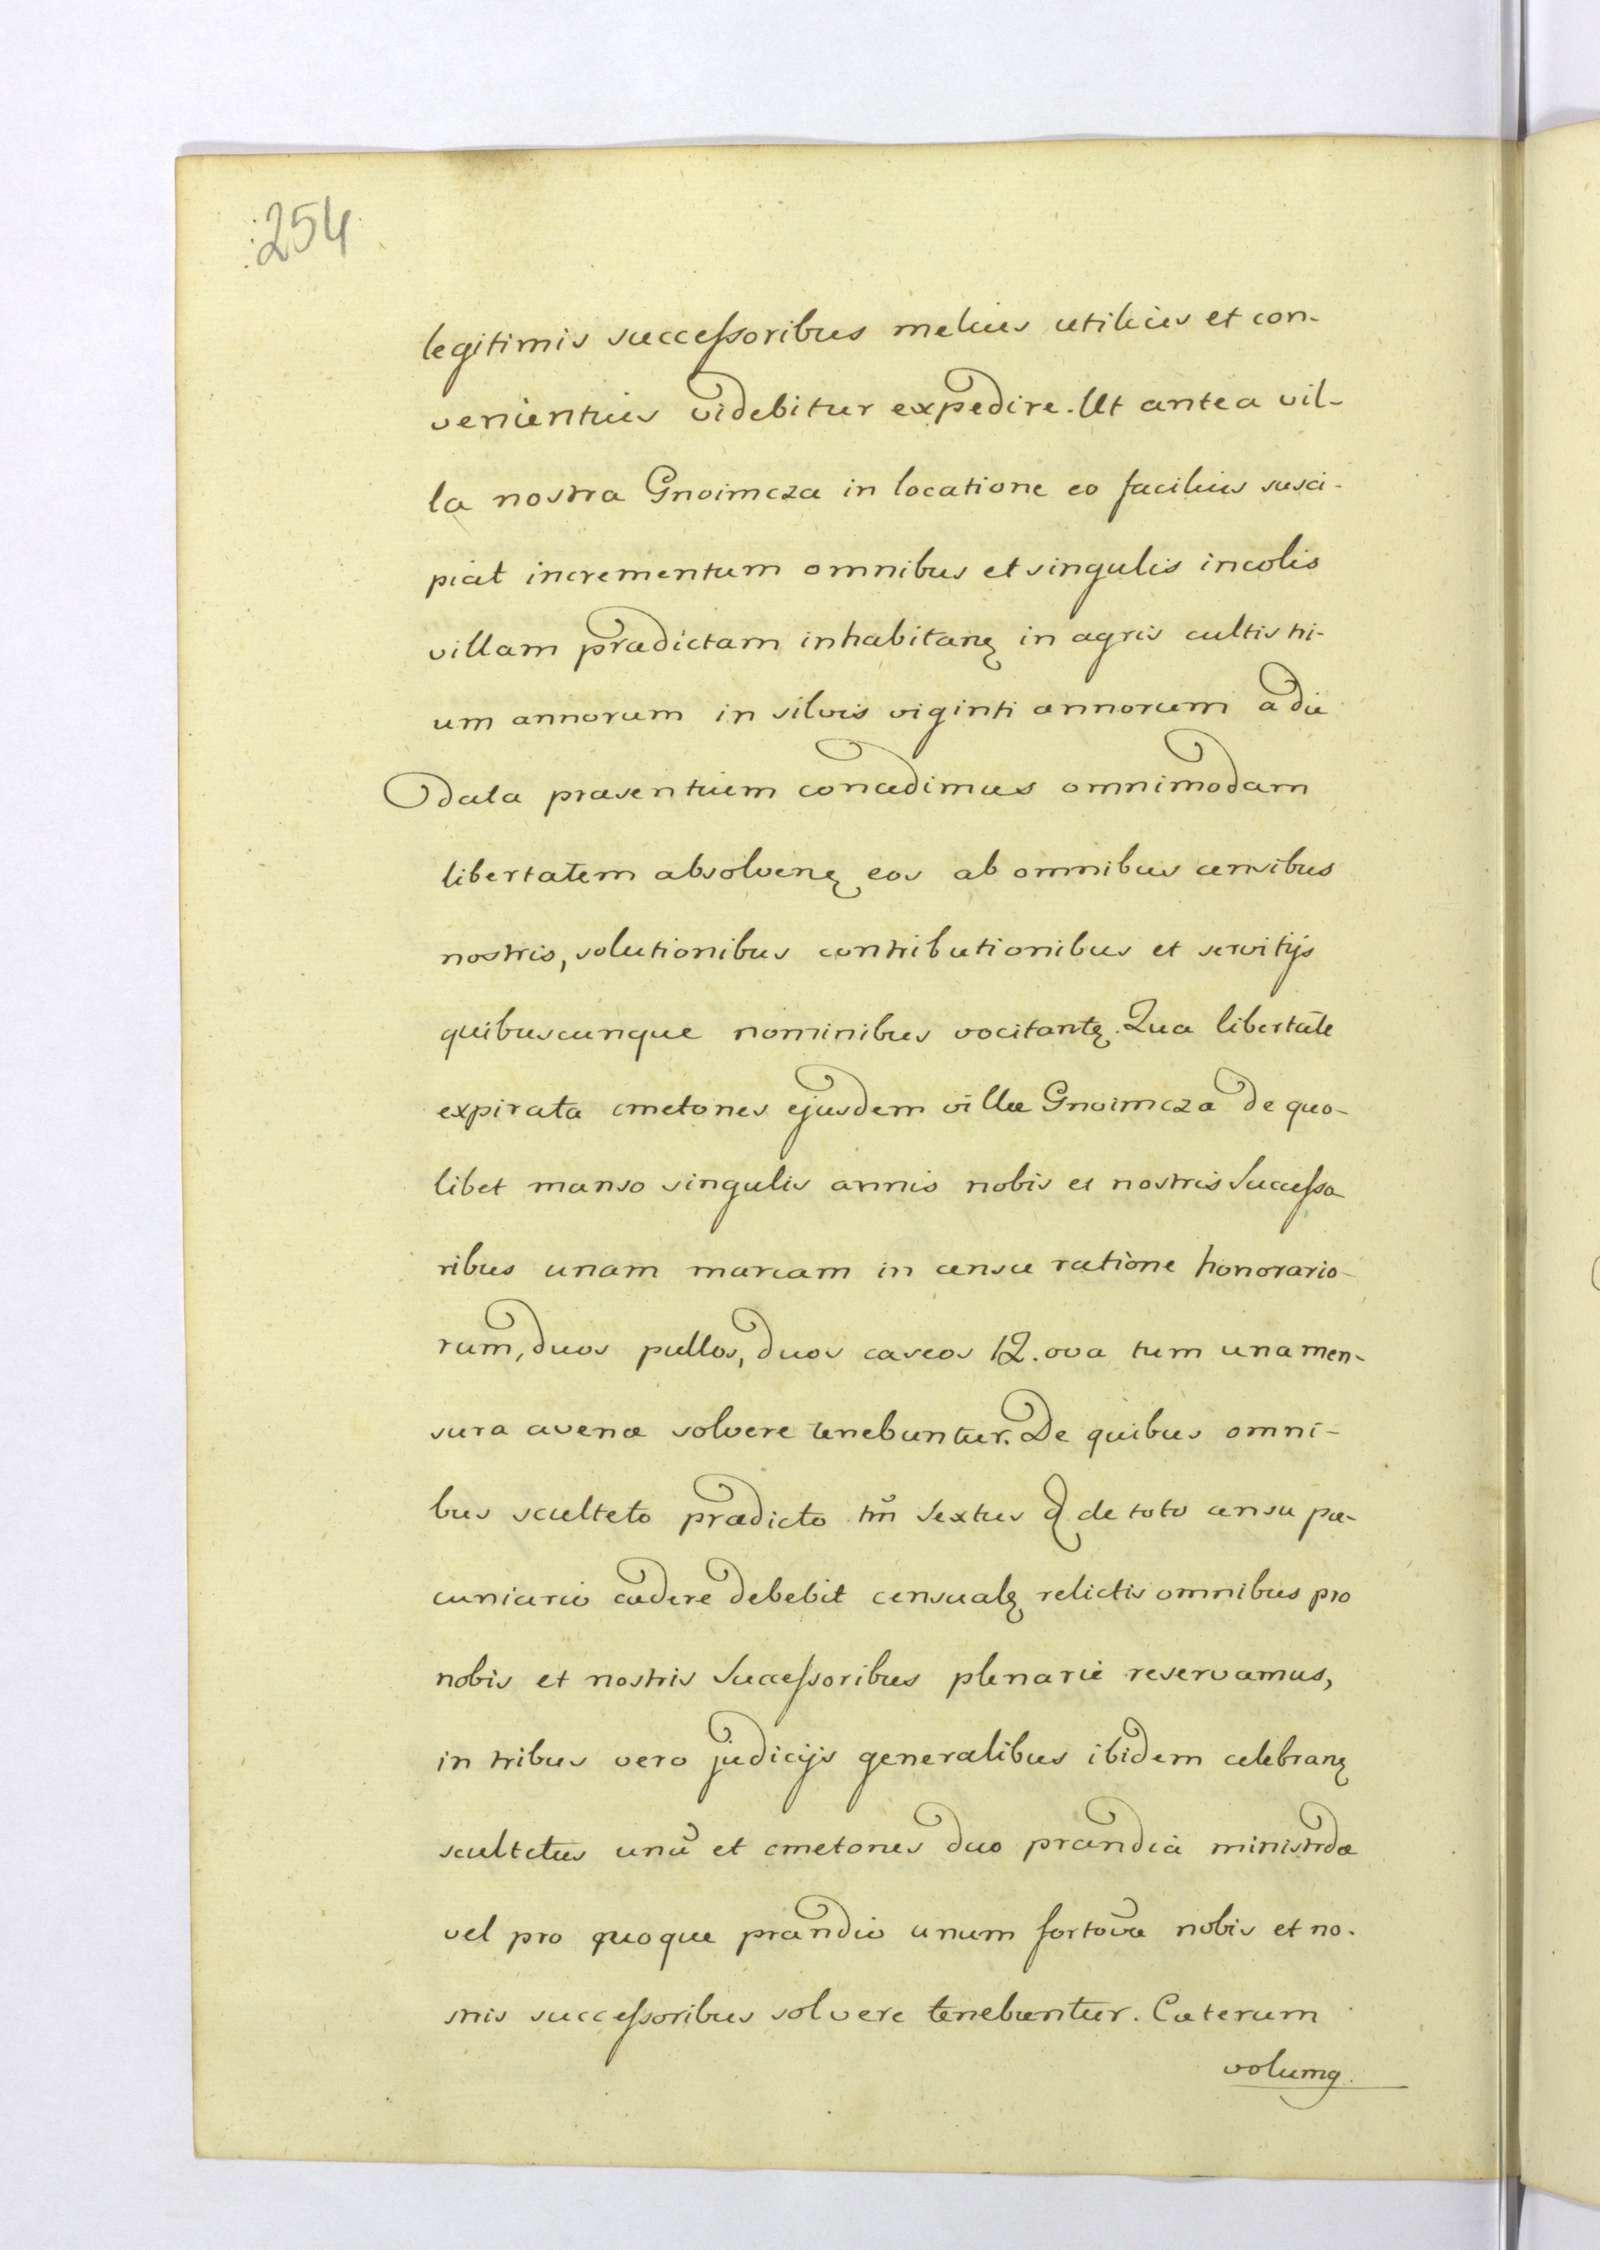 254
legitimis successoribus melius utilius et con-
venientius videbitur expedire. Ut antea vil-
la nostra Gnoimcza in locatione eo facilius susci-
piat incrementum omnibus et singulis incolis
villam prædictam inhabitanȝ in agris cultis tri-
um annorum in silvis viginti annorum a die
data præsentium concedimus omnimodam
libertatem absolvenȝ eos ab omnibus censibus
nostris, solutionibus contributionibus et servitijs
quibuscunque nominibus vocitantȝ. Qua libertate
expirata cmetones ejusdem villæ Gnoimcza de quo-
libet manso singulis annis nobis et nostris Successo-
ribus unam marcam in censu ratione honorario-
rum, duos pullos, duos caseos 12. ova tum una men-
sura avenæ solvere tenebuntur. De quibus omni-
bus sculteto prædicto tm̃ Sextus de toto censu pæ-
cuniario cædere debebit censualȝ relictis omnibus pro
nobis et nostris Successoribus plenarie reservamus,
in tribus vero judicijs generalibus ibidem celebranȝ
scultetus unũ et cmetones duo prandia
vel pro quoque prandio unum nobis et no-
stris successoribus solvere tenebuntur. Cæterum
volumꝯ.